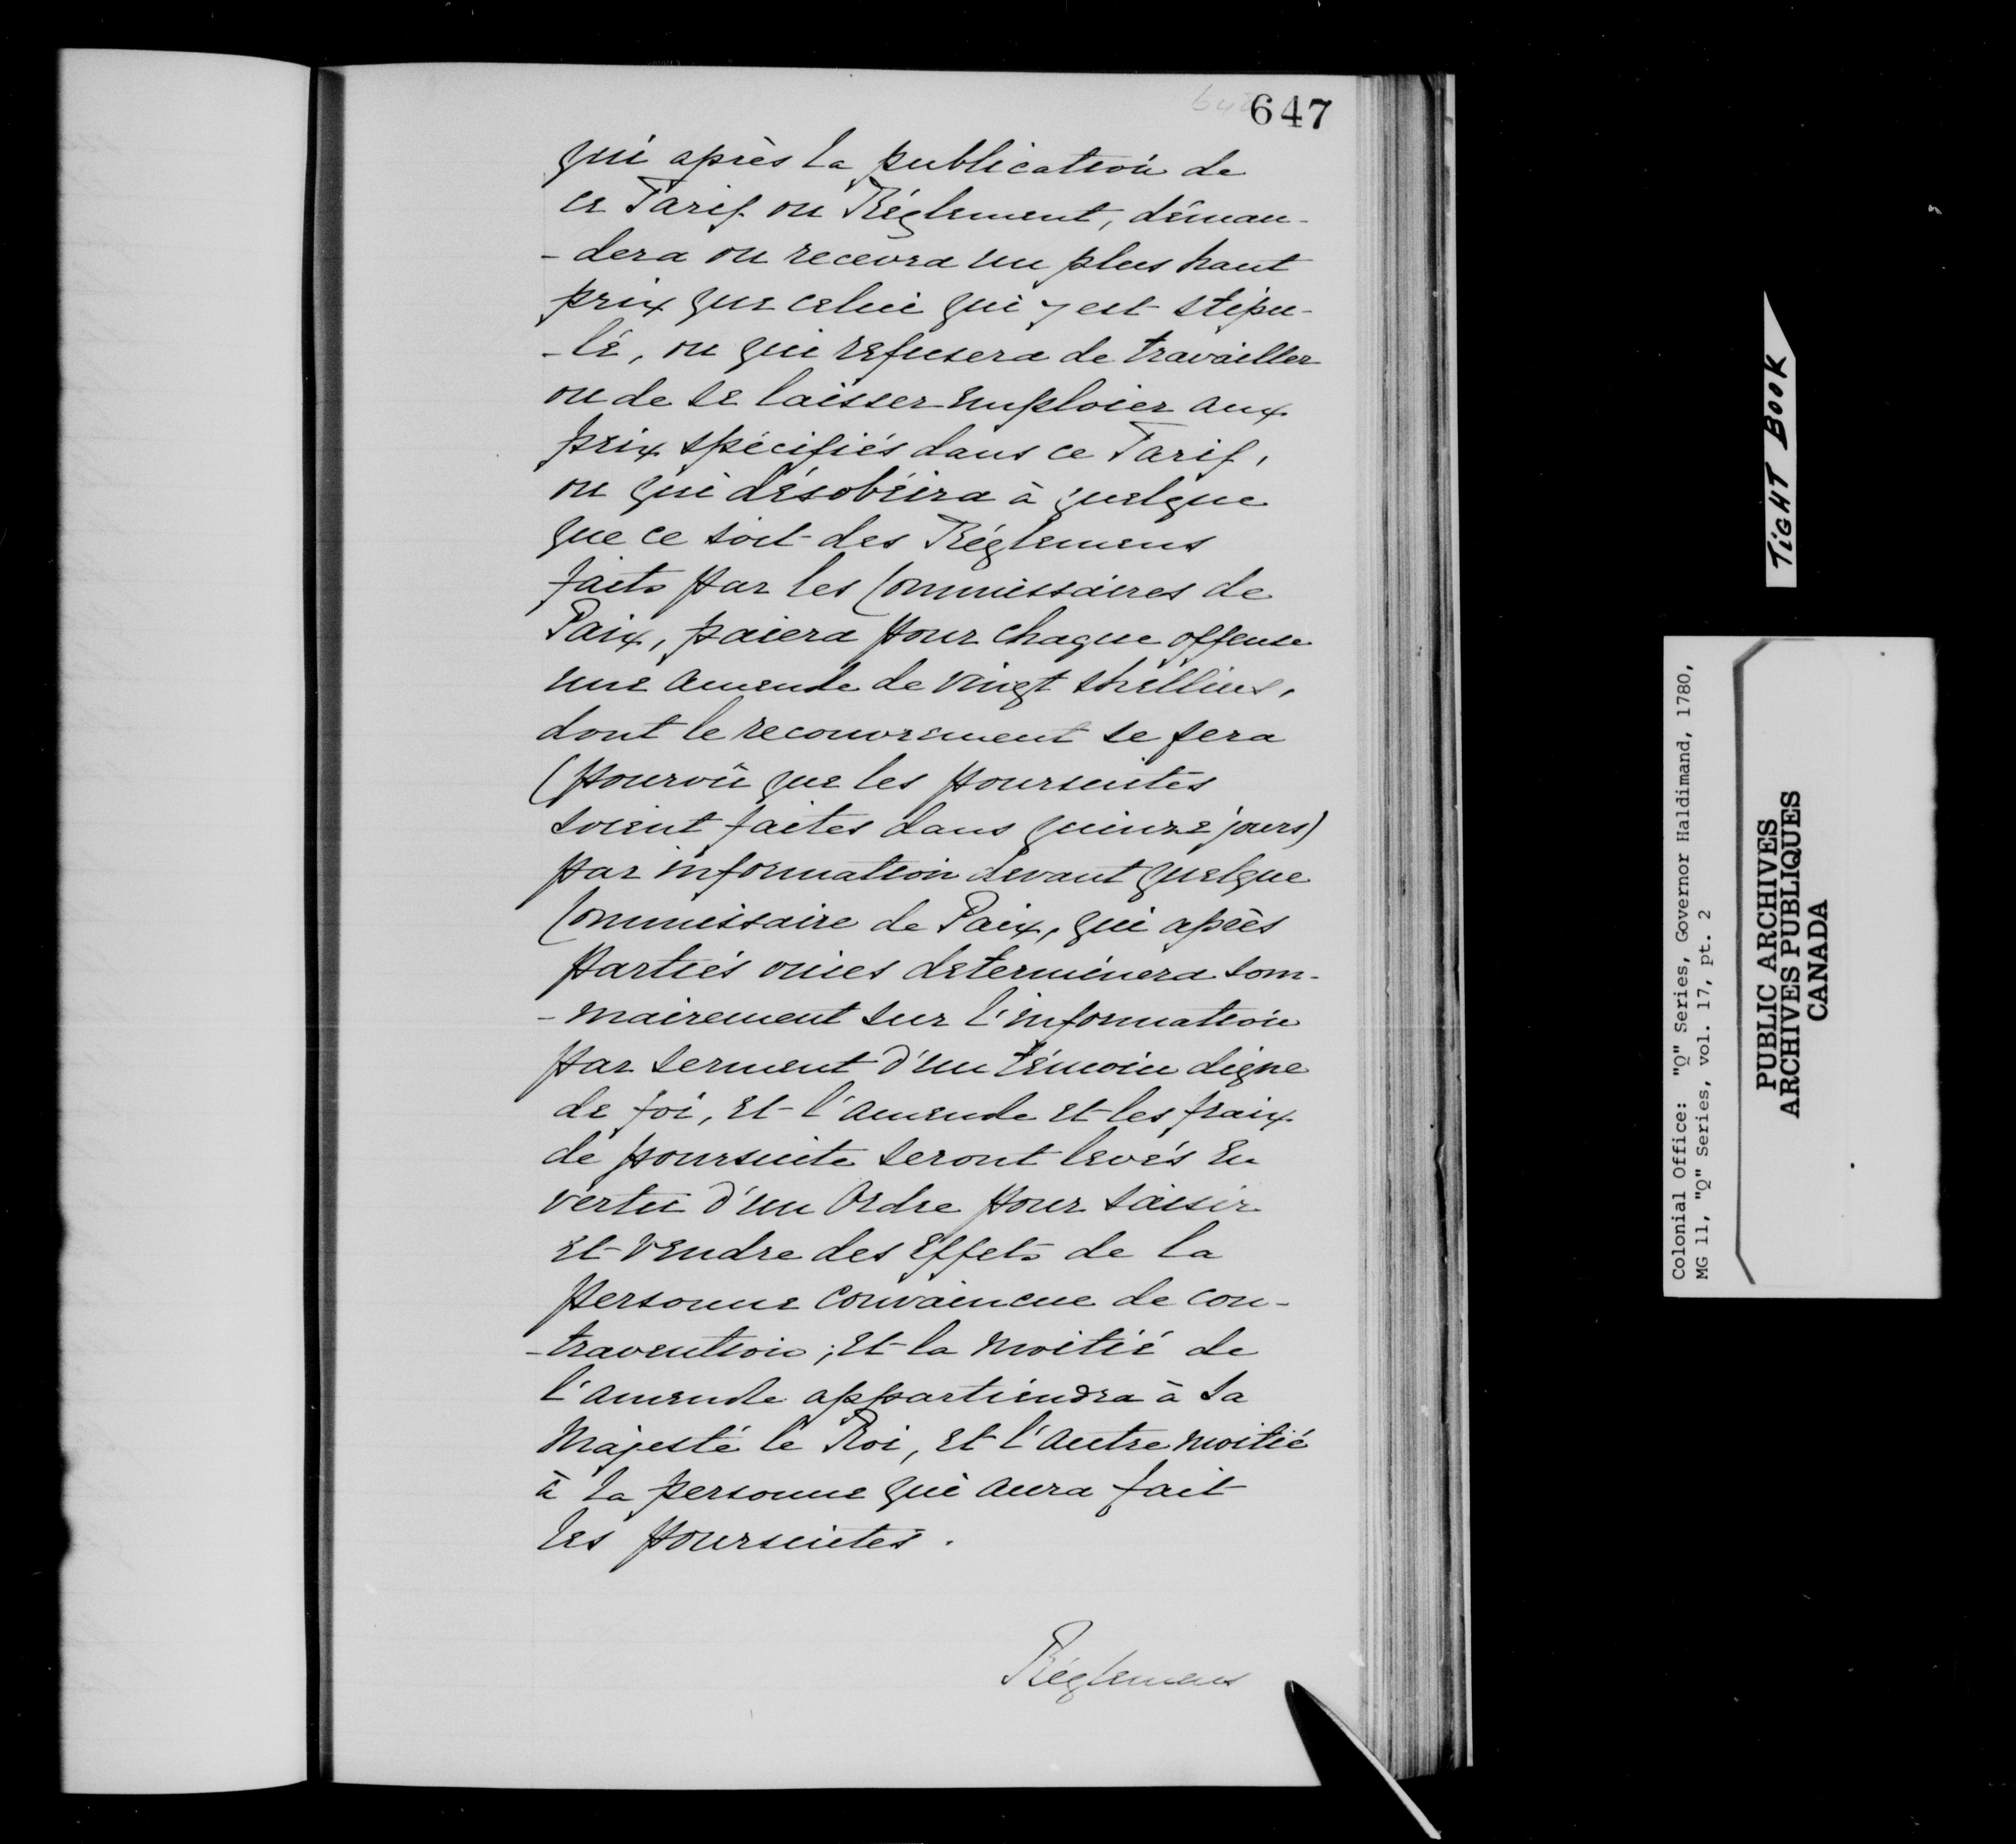 647
qui après la publication de
ce Tarif ou Réglement, déman-
-dera ou recevra un plus haut
prix que celui qui y est stipu-
-lé, ou qui refusera de travailler
ou de se laisser emploier aux
prix spécifiés dans ce Tarif,
ou qui désobéira à quelque
que ce soit des Réglemens
faits par les Commissaires de
Paix, paiera pour chaque offense
une amende de vingt shellins,
dont le recouvrement se fera
(pourvû que les poursuites
soient faites dans quinze jours)
par information devant quelque
Commissaire de Paix, qui après
parties ouies determinera som-
-mairement sur l'information
par serment d'un témoin digne
de foi, et l'amende et les fraix
de poursuite seront levés en
vertu d'un Ordre pour saisir
et vendre des effets de la
personne convaincue de con-
-travention; et la moitié de
l'amende appartiendra à Sa
Majesté le Roi, et l'autre moitié
à la personne qui aura fait
les poursuites.
Réglemens
TIGHT BOOK
Colonial Office: "Q" Series, Governor Haldimand, 1780,
MG 11, "Q" Series, vol. 17, pt. 2
PUBLIC ARCHIVES
ARCHIVES PUBLIQUES
CANADA